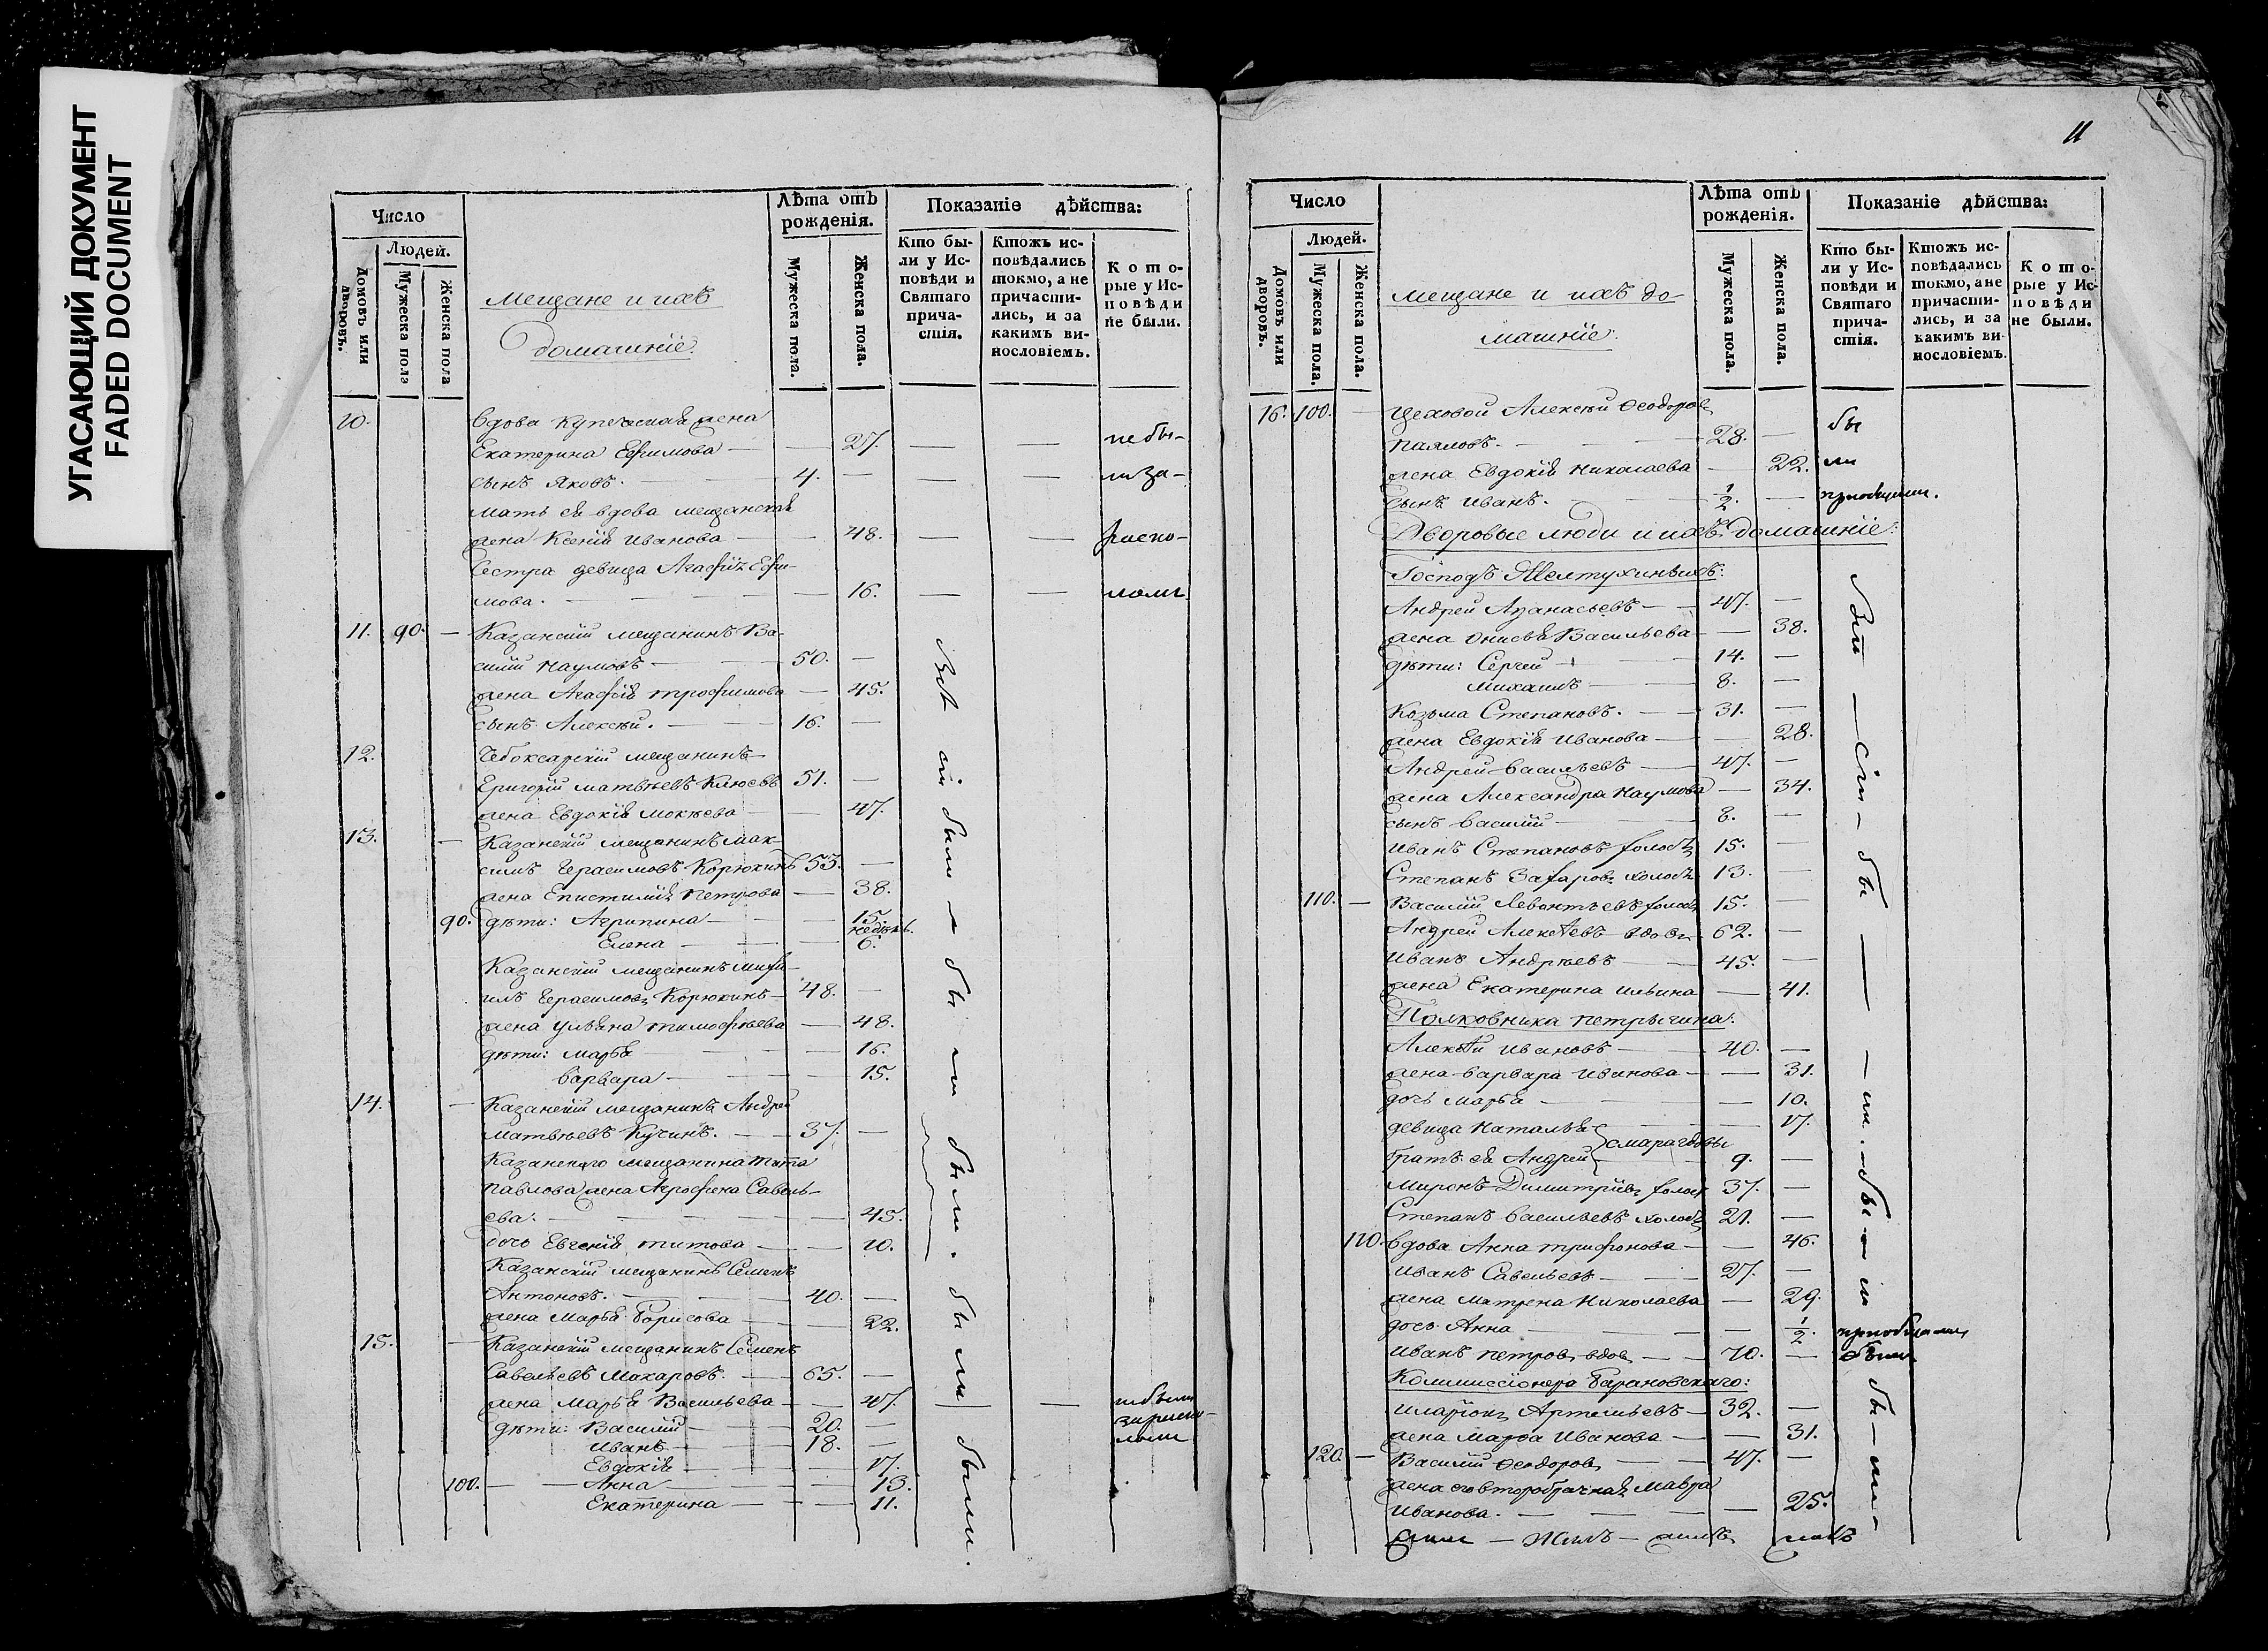 УГАСАЮЩИЙ ДОКУМЕНТ
FADED DOCUMENT
Число
Людей.
Домовъ или дворовъ.
Мужеска пола
Женска пола
Мещане и ихъ
домашнїе.
Лѣта отъ рожденія.
Мужеска пола.
Женска пола.
Показаніе дѣйства:
Кто бы-
ли у Ис-
повѣди и
Святаго
прича-
стія.
Ктожъ ис-
повѣдались
токмо, а не
причасти-
лись, и за
какимъ ви-
нословіемъ.
Кото-
рые у Ис-
повѣди
не были.
10. вдова купеческая жена
Екатерина Ефимова — 27. — — не бы-
сынъ Яковъ. — 4. — — — ли за-
мать ея вдова мещанская
жена Ксенія Иванова — 48. — — раско-
Сестра девица Агафія Ефи-
мова. — 16. — — ломъ.
11. 90. — Казанскій мещанинъ Ва-
силій Наумовъ — 50. —
жена Агафія Трофимова — 45.
сынъ Алексѣй. — 16. —
12. Чебоксарскій мещанинъ
Григорій Матвѣевъ Клюевъ 51. —
жена Евдокія Мокѣева — 47.
13. — Казанскій мещанинъ Мак-
симъ Герасимовъ Корюкинъ 53. —
жена Епистимія Петрова — 38.
90. дѣти: Агрипина — 15.
недѣль
Елена — 6.
Казанскій мещанинъ Миха-
илъ Герасимовъ Корюкинъ — 48. —
жена Ульяна Тимофѣева — 48.
дѣти: Марѳа — 16.
Варвара — 15.
14. — Казанскій мещанинъ Андрей
Матвѣевъ Кучинъ. — 37. —
Казанскаго мещанина Тита
Павлова жена Агрофена Савель-
ева. — 45.
дочь Евгенія Титова — 10.
Казанскій мещанинъ Семенъ
Антоновъ. — 40. —
жена Марѳа Борисова — 22.
15. — Казанскій мещанинъ Семенъ
Савельевъ Макаровъ. — 65. —
жена Марья Васильева — 47. — не были
дѣти: Василій — 20. — за раско-
Иванъ — 18. — ломъ
Евдокія — 17.
100. — Анна — 13.
Екатерина — 11.
Всѣ сіи были
были.
были
были.
11
Число
Людей.
Домовъ или дворовъ.
Мужеска пола.
Женска пола.
Мещане и ихъ до-
машнїе:
Лѣта отъ рожденія.
Мужеска пола.
Женска пола.
Показаніе дѣйства:
Кто бы-
ли у Ис-
повѣди и
Святаго
прича-
стія.
Ктожъ ис-
повѣдались
токмо, а не
причасти-
лись, и за
какимъ ви-
нословіемъ.
Кото-
рые у Ис-
повѣди
не были.
16. 100. — Цеховой Алексѣй Ѳеодоровъ
28. — бы
жена Евдокія Николаева — 22. ли
сынъ Иванъ. — 1/2. —
Дворовые люди и ихъ домашніе:
Господъ Желтухиныхъ:
Андрей Аѳанасьевъ — 47. —
жена Онисья Васильева — 38.
дѣти: Сергей — 14. —
Михаилъ — 8. —
Козьма Степановъ. — 31. —
жена Евдокія Иванова — 28.
Андрей Васильевъ — 47. —
жена Александра Наумова — 34.
сынъ Василій — 8. —
Иванъ Степановъ холостъ 15. —
Степанъ Захаровъ холостъ 13. —
110. — Василій Левонтьевъ холостъ 15. —
Андрей Алексѣевъ вдовъ 62. —
Иванъ Андрѣевъ — 45. —
жена Екатерина Ильина — 41.
Полковника Петрыгина:
Алексѣй Ивановъ — 40. —
жена Варвара Иванова — 31.
дочь Марѳа — 10.
девица Наталья — 17.
Смарагдовы
братъ ея Андрей — 9. —
Миронъ Димитріевъ холостъ 37. —
Степанъ Васильевъ холостъ 21. —
110. вдова Анна Трифонова — 46.
Иванъ Савельевъ — 27. —
жена Матрена Николаева — 29.
дочь Анна — 1/2.
Иванъ Петровъ вдовъ — 70. — были
Коммиссіонера Барановскаго:
Иларіонъ Артемьевъ — 32. —
жена Марѳа Иванова — 31.
120. — Василій Ѳеодоровъ — 47. —
жена его второбрачная Мавра
Иванова. — 25.
Всѣ — сіи — бы — ли. — бы — ли
бы — ли —